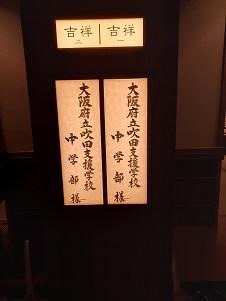 吉祥 二
吉祥 一
大阪府立吹田支援学校
中学部様
大阪府立吹田支援学校
中学部様